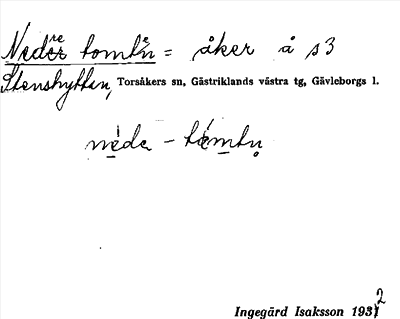 Nedre tomtẽn = åker å s3
Stenshyttan, Torsåkers sn, Gästriklands västra tg, Gävleborgs l.
neda - tomtn
Ingegärd Isaksson 1932